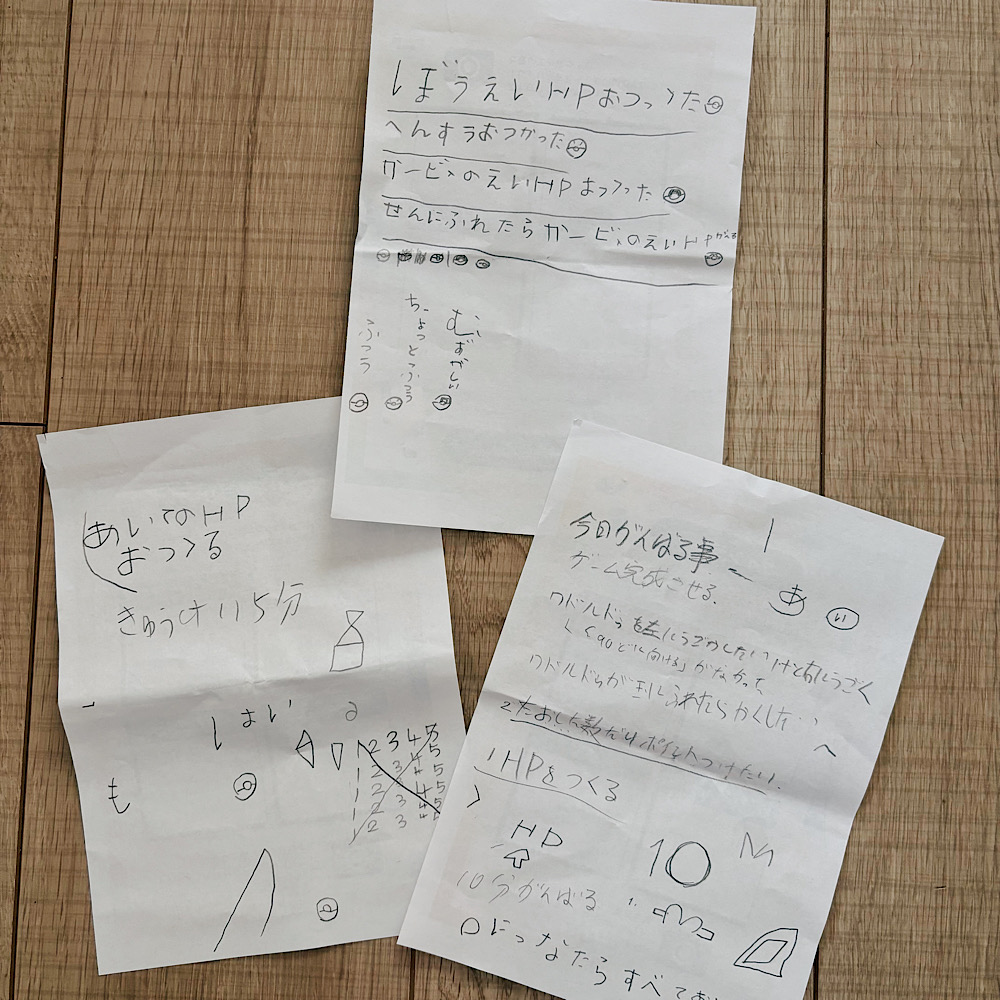 ぼうえいHPおつくった
へんすうおつかった
カービィのえいHPおつくった
せんにふれたらカービィのえいHPがへる
むずがしい
ちょっとふつう
ふつう
あいてのHP
おつくる
きゅうけい15分
はい
も
1 2 3 4 5
1 2 3 4 5
1 2 3 4 5
1 2 3 4 5
1 2 3 4 5
1
今日がんばる事
ゲーム完成させる。
あ
い
ワドルドゥを左にうごかしたいけど右にうごく
く「90どに向ける」がなかった
ワドルドゥが玉にふれたらかくしたい
2 たおした数だけポイントつけたい。
1 HPをつくる
HP
10
10分がんばる
0になったらすべて